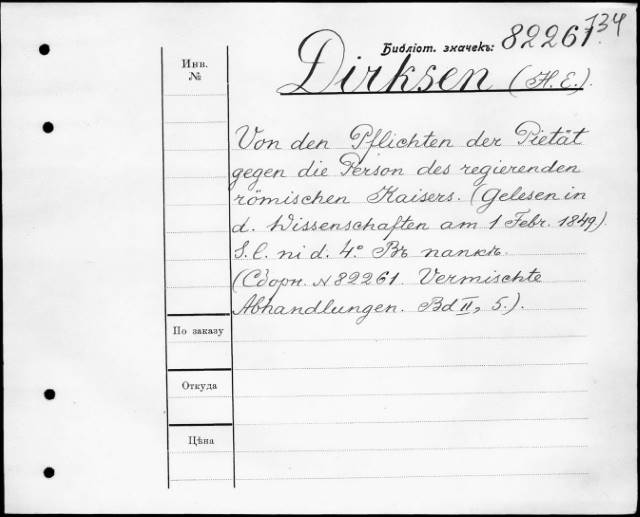 Библіот. значекъ: 82261 734
Инв.
№
Dirksen (H. E.).
Von den Pflichten der Pietät
gegen die Person des regierenden
römischen Kaisers. (Gelesen in
d. Wissenschaften am 1 Febr. 1849).
S. l. ni d. 4º. Въ папкѣ.
(Сборн. N 82261. Vermischte
Abhandlungen. Bd II, 5.).
По заказу
Откуда
Цѣна